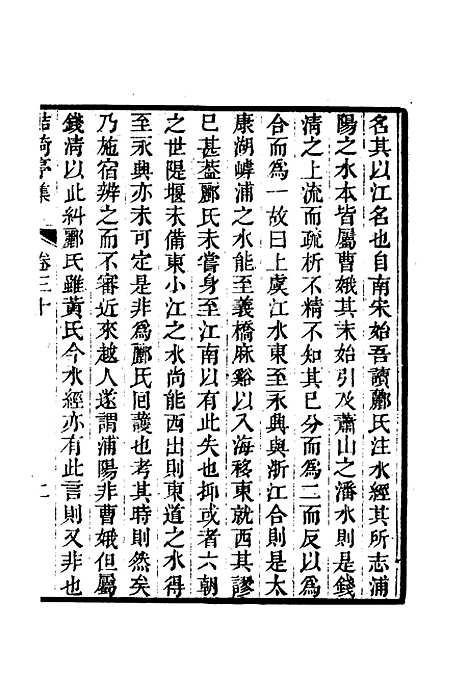 名其以江名也自南宋始吾讀酈氏注水經其所志浦
陽之水本皆屬曹娥其末始引及蕭山之潘水則是錢
清之上流而疏析不精不知其已分而爲二而反以爲
合而爲一故曰上虞江水東至永興與浙江合則是太
康湖嶀浦之水能至義橋麻谿以入海移東就西其謬
已甚蓋酈氏未嘗身至江南以有此失也抑或者六朝
之世隄堰未備東小江之水尚能西出則東道之水得
至永興亦未可定是非爲酈氏回護也考其時則然矣
乃施宿辨之而不審近來越人遂謂浦陽非曹娥但屬
錢清以此糾酈氏雖黃氏今水經亦有此言則又非也
鮚埼亭集
卷三十
二